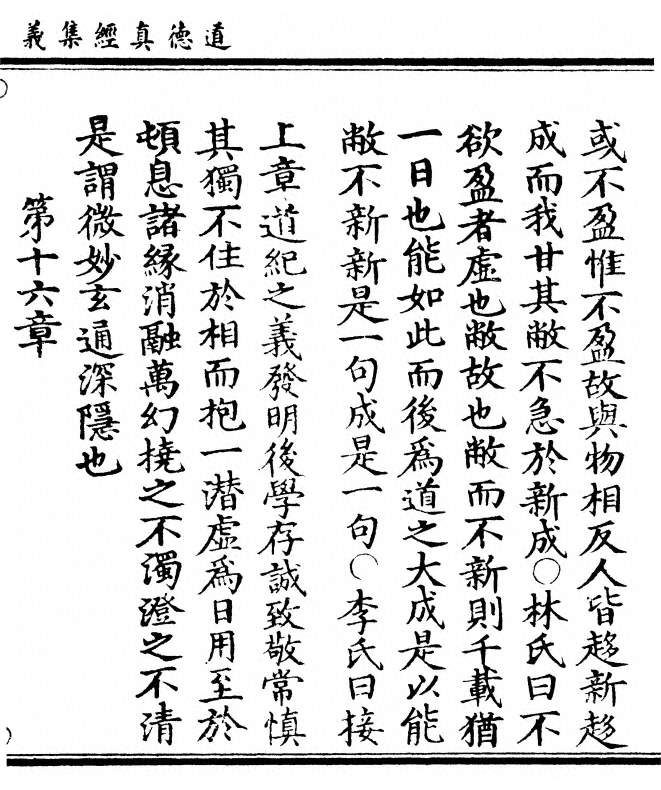 道德真經集義
或不盈惟不盈故與物相反人皆趍新趍
成而我甘其敝不急於新成〇林氏曰不
欲盈者虛也敝故也敝而不新則千載猶
一日也能如此而後爲道之大成是以能
敝不新新是一句成是一句〇李氏曰接
上章道紀之義發明後學存誠致敬常慎
其獨不住於相而抱一潜虛爲日用至於
頓息諸緣消融萬幻撓之不濁澄之不清
是謂微妙玄通深隱也
第十六章